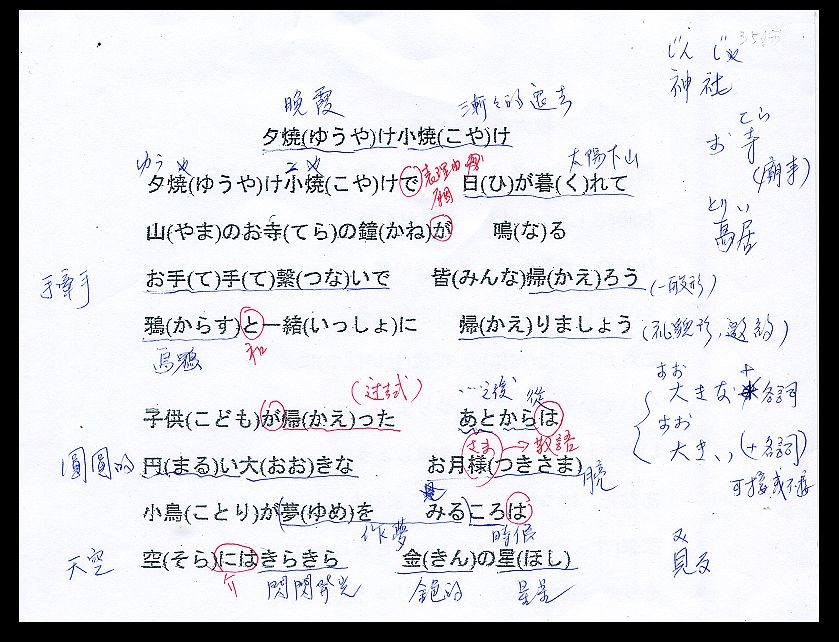 じん じゃ
神社
晚霞 漸々的
夕焼(ゆうや)け小焼(こや)け
てら
お寺
(廟寺)
ゆう や こ や 表理由 太陽下山
夕焼(ゆうや)け小焼(こや)けで 日(ひ)が暮(く)れて
とり い
鳥居
山(やま)のお寺(てら)の鐘(かね)が 鳴(な)る
手牽手 お手(て)手(て)繋(つな)いで 皆(みんな)帰(かえ)ろう (一般形)
鴉(からす)と一緒(いっしょ)に 帰(かえ)りましょう (礼貌形,邀約)
烏鴉 和
(过去式) …之後 從
おお
大きな + 名詞
子供(こども)が帰(かえ)った あとからは
おお
大きい (+名詞)
さま → 敬語
圓圓的 円(まる)い大(おお)きな お月様(つきさま) 月亮
可接或不接
小鳥(ことり)が夢(ゆめ)を みるころは
作夢 時候
天空 空(そら)にはきらきら 金(きん)の星(ほし)
閃閃發光 金色的 星星
見る